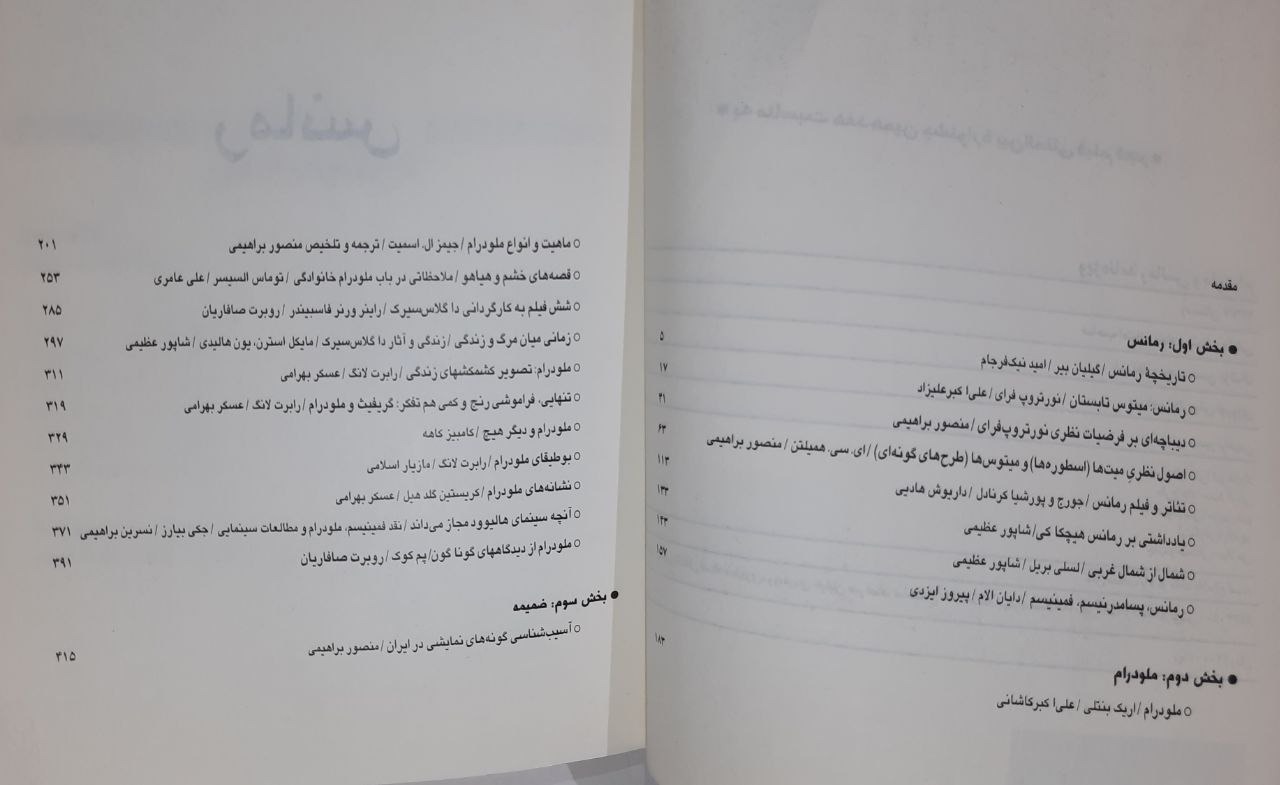 مقدمه
● بخش اول: رمانس
○ تاریخچهٔ رمانس / گیلیان بیر / امید نیک‌فرجام ۵
○ رمانس: میتوس تابستان / نورتروپ فرای / علی‌اکبر علیزاد ۱۷
○ دیباچه‌ای بر فرضیات نظری نورتروپ‌فرای / منصور براهیمی ۴۱
○ اصول نظریِ میت‌ها (اسطوره‌ها) و میتوس‌ها (طرح‌های گونه‌ای) / ای. سی. همیلتن / منصور براهیمی ۶۳
○ تئاتر و فیلم رمانس / جورج و پورشیا کرنادل / داریوش هادیی ۱۱۳
○ یادداشتی بر رمانس هیچکاکی / شاپور عظیمی ۱۳۳
○ شمال از شمال غربی / لسلی بریل / شاپور عظیمی ۱۴۳
○ رمانس، پسامدرنیسم، فمینیسم / دایان الام / پیروز ایزدی ۱۵۷
● بخش دوم: ملودرام
○ ملودرام / اریک بنتلی / علی‌اکبرکاشانی ۱۸۳
○ ماهیت و انواع ملودرام / جیمز ال. اسمیت / ترجمه و تلخیص منصور براهیمی ۲۰۱
○ قصه‌های خشم و هیاهو / ملاحظاتی در باب ملودرام خانوادگی / توماس السیسر / علی عامری ۲۵۳
○ شش فیلم به کارگردانی داگلاس‌سیرک / راینر ورنر فاسبیندر / روبرت صافاریان ۲۸۵
○ زمانی میان مرگ و زندگی / زندگی و آثار داگلاس‌سیرک / مایکل استرن، یون هالیدی / شاپور عظیمی ۲۹۷
○ ملودرام: تصویر کشمکشهای زندگی / رابرت لانگ / عسکر بهرامی ۳۱۱
○ تنهایی، فراموشی رنج و کمی هم تفکر: گریفیث و ملودرام / رابرت لانگ / عسکر بهرامی ۳۱۹
○ ملودرام و دیگر هیچ / کامبیز کاهه ۳۲۹
○ بوطیقای ملودرام / رابرت لانگ / مازیار اسلامی ۳۴۳
○ نشانه‌های ملودرام / کریستین گلد هیل / عسکر بهرامی ۳۵۱
○ آنچه سینمای هالیوود مجاز می‌داند / نقد فمینیسم، ملودرام و مطالعات سینمایی / جکی بیارز / نسرین براهیمی ۳۷۱
○ ملودرام از دیدگاههای گوناگون / پم کوک / روبرت صافاریان ۳۹۱
● بخش سوم: ضمیمه
○ آسیب‌شناسی گونه‌های نمایشی در ایران / منصور براهیمی ۴۱۵